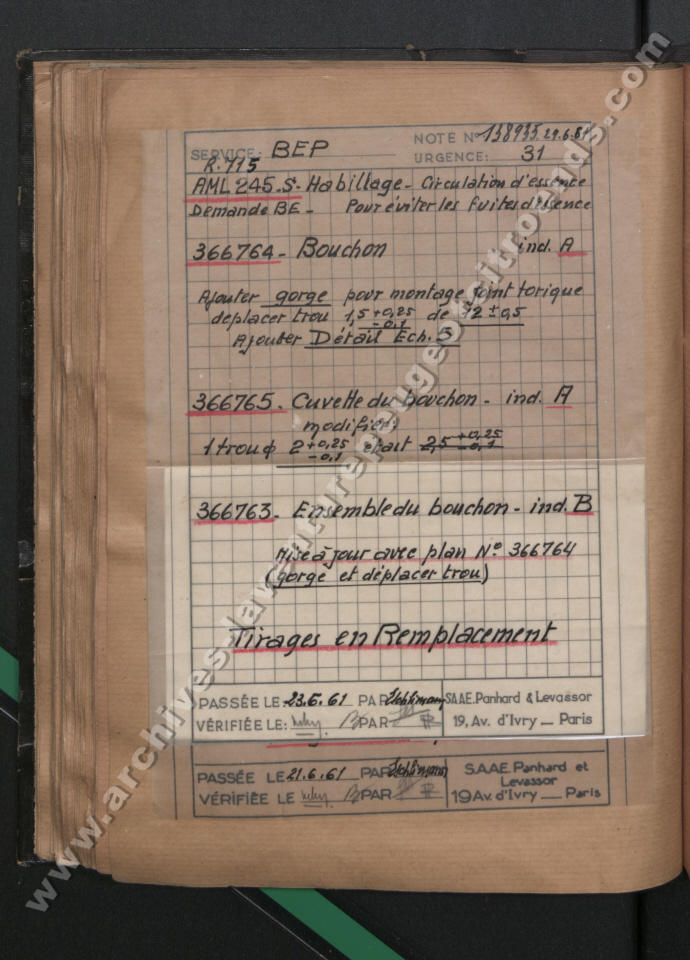 SERVICE: BEP
NOTE N° 138935 29.6.61
R.715
URGENCE: 31
AML 245.S- Habillage - Circulation d'essence
Demande BE - Pour éviter les fuites d'essence
366764 - Bouchon ind. A
Ajouter gorge pour montage joint torique
déplacer trou 1,5 +0,25 -0,1 de 12 ±0,5
Ajouter Détail Ech. 5
366765 - Cuvette du bouchon - ind. A
modifier
1 trou ϕ 2 +0,25 -0,1 était 2,5 +0,25 -0,1
366763 - Ensemble du bouchon - ind. B
Mise à jour avec plan N° 366764
(gorge et déplacer trou)
Tirages en Remplacement
PASSÉE LE 23.6.61 PAR
VÉRIFIÉE LE: PAR
SAAE. Panhard & Levassor
19, Av. d'Ivry - Paris
PASSÉE LE 21.6.61 PAR
VÉRIFIÉE LE PAR
S.A.A.E. Panhard et
Levassor
19 Av. d'Ivry - Paris
www.archives-laventurepeugeotcitroends.com